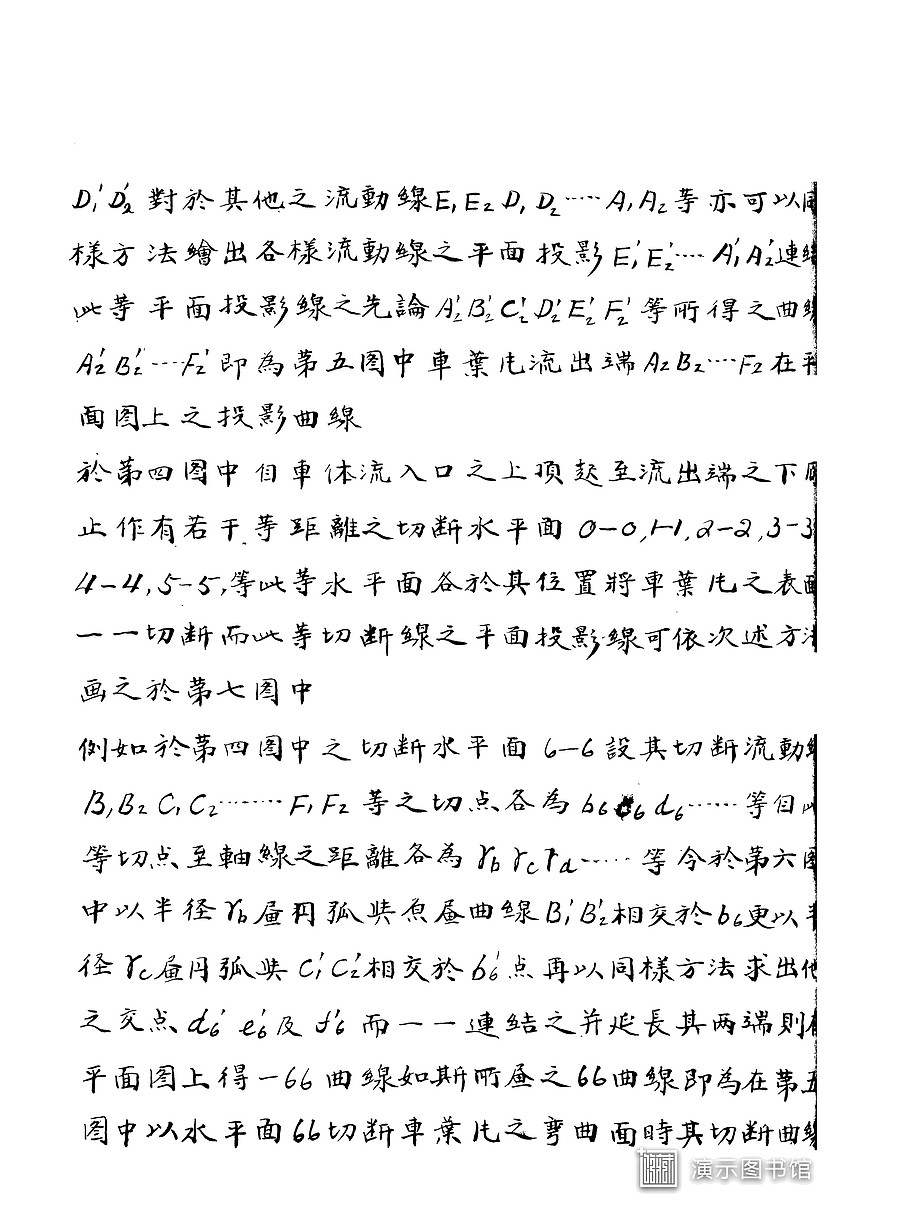 D₁′D₂′對於其他之流動線E₁E₂D₁D₂……A₁A₂等亦可以同
樣方法繪出各樣流動線之平面投影E₁′E₂′……A₁′A₂′連結
此等平面投影線之先論A₂′B₂′C₂′D₂′E₂′F₂′等所得之曲線
A₂′B₂′……F₂′即為第五图中車葉片流出端A₂B₂……F₂在平
面图上之投影曲線
於第四图中自車体流入口之上頂起至流出端之下
止作有若干等距離之切断水平面0-0,1-1,2-2,3-3
4-4,5-5,等此等水平面各於其位置將車葉片之表面
一一切断而此等切断線之平面投影線可依次述方法
画之於第七图中
例如於第四图中之切断水平面6-6設其切断流動線
B₁B₂C₁C₂………F₁F₂等之切点各為b₆c₆d₆……等自此
等切点至軸線之距離各為r_b r_c r_d……等令於第六图
中以半径r_b画円弧與原画曲線B₁′B₂′相交於b₆更以半
径r_c画円弧與C₁′C₂′相交於b₆′点再以同樣方法求出他
之交点d₆′e₆′及f₆′而一一連结之并延長其两端則在
平面图上得一66曲線如斯所画之66曲線即為在第五
图中以水平面66切断車葉片之弯曲面時其切断曲線
演示图书馆